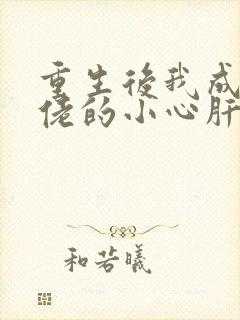 重生後我成
佬的小心肝
和若曦